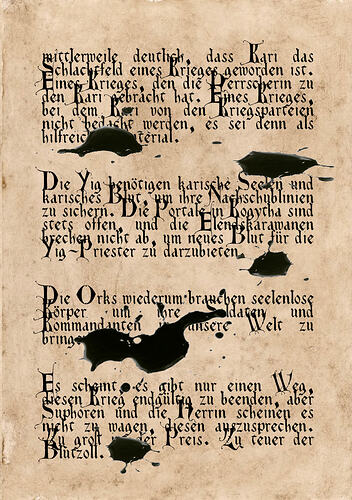 mittlerweile deutlich, dass Kari das
Schlachtfeld eines Krieges geworden ist.
Eines Krieges, den die Herrscherin zu
den Kari gebracht hat. Eines Krieges,
bei dem Kari von den Kriegsparteien
nicht bedacht werden, es sei denn als
hilfreic terial.
Die Yig benötigen karische Seelen und
karisches Blut, um ihre Nachschublinien
zu sichern. Die Portale in Rogytha sind
stets offen, und die Elendskarawanen
brechen nicht ab, um neues Blut für die
Yig-Priester zu darzubieten.
Die Orks wiederum brauchen seelenlose
Körper um ihre ldaten und
Kommandanten unsere Welt zu
bring
Es scheint es gibt nur einen Weg,
diesen Krieg endgültig zu beenden, aber
Suphoren und die Herrin scheinen es
nicht zu wagen, diesen auzusprechen.
Zu groß der Preis. Zu teuer der
Blutzoll.